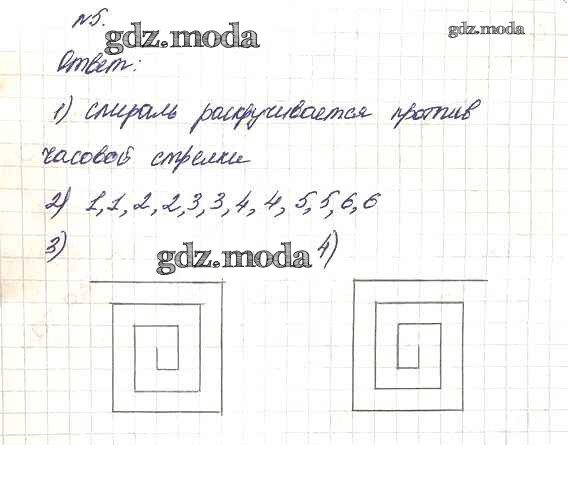 №5.
gdz.moda
gdz.moda
Ответ:
1) спираль раскручивается против
часовой стрелки
2) 1, 1, 2, 2, 3, 3, 4, 4, 5, 5, 6, 6
3)
gdz.moda
4)